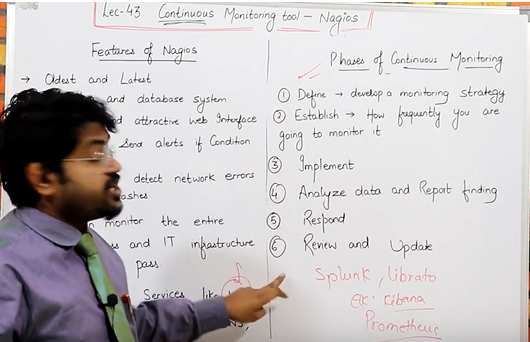 Lec-43 Continuous Monitoring tool - Nagios
Features of Nagios
→ Oldest and Latest
and database system
attractive web Interface
Send alerts if Condition
detect network errors
monitor the entire
and IT infrastructure
pass.
Services like
Phases of Continuous Monitoring
① Define → develop a monitoring strategy
② Establish → How frequently you are
going to monitor it
③ Implement
④ Analyze data and Report finding
⑤ Respond
⑥ Review and Update
Splunk, librato
Kibana
Prometheus